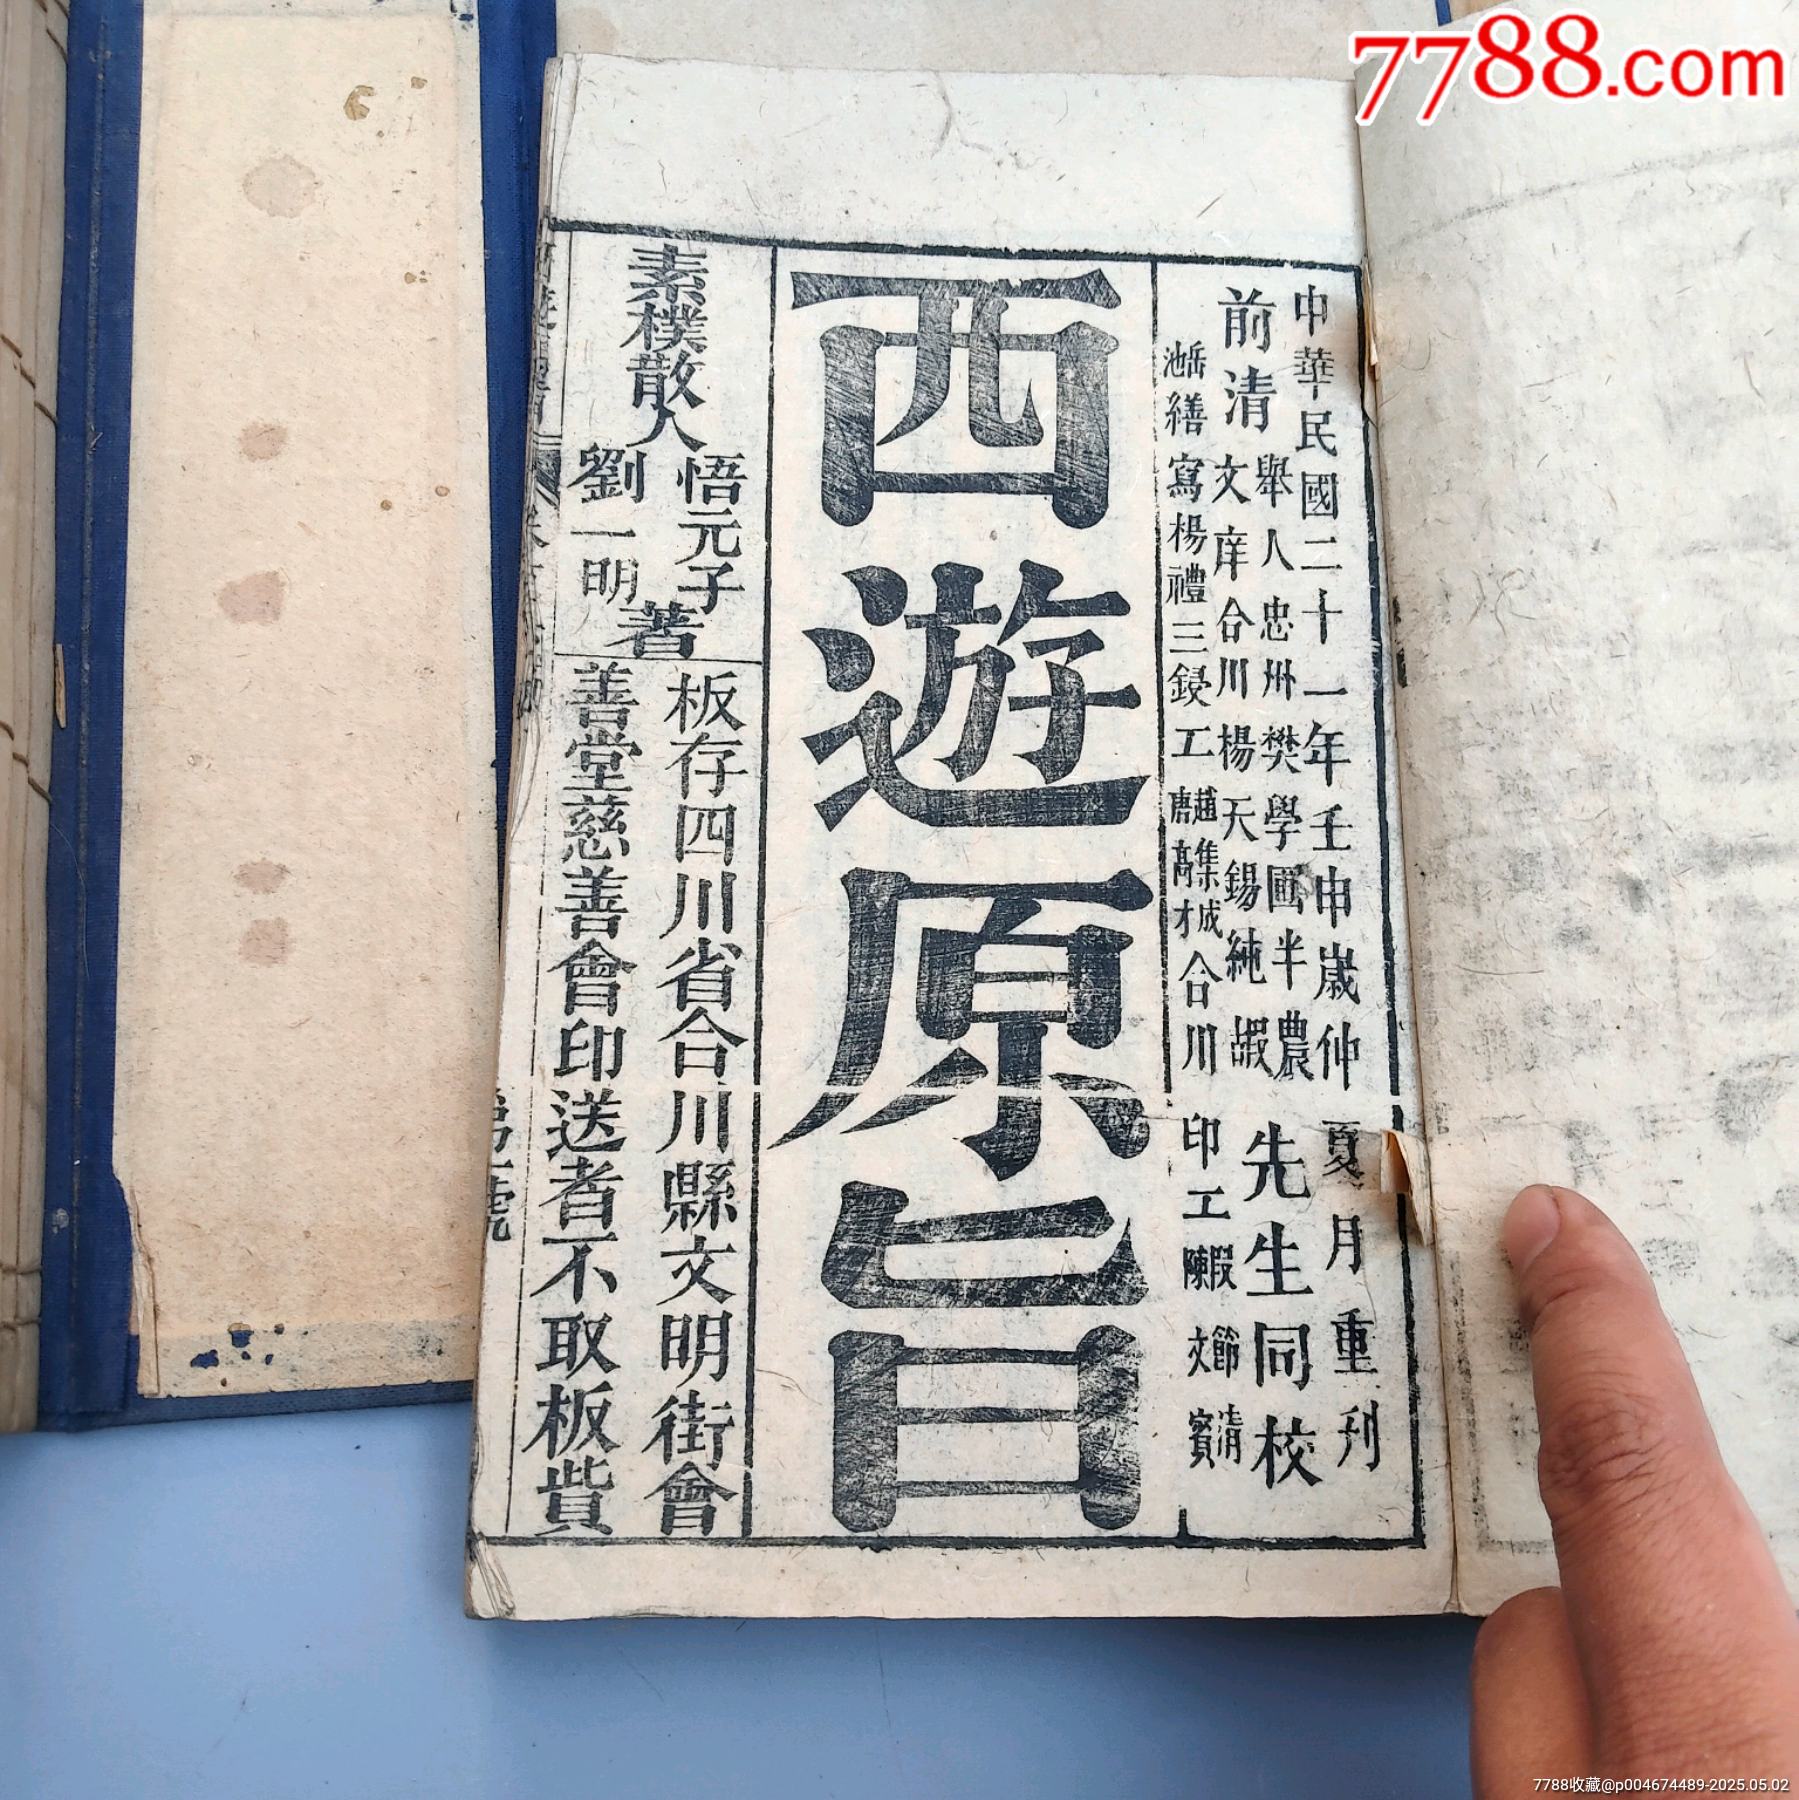 7788.com
中華民國二十一年壬申歲仲夏月重刊
前清
舉人忠州樊學圃半農
文庠合川楊天錫純嘏
先生同校
岳池繕寫楊禮三鋟工
趙集成
唐高才
合川印工
段節清
陳文賓
西遊原旨
素樸散人
悟元子
劉一明
著
板存四川省合川縣文明街會
善堂慈善會印送者不取板貲
7788收藏@p004674489-2025.05.02